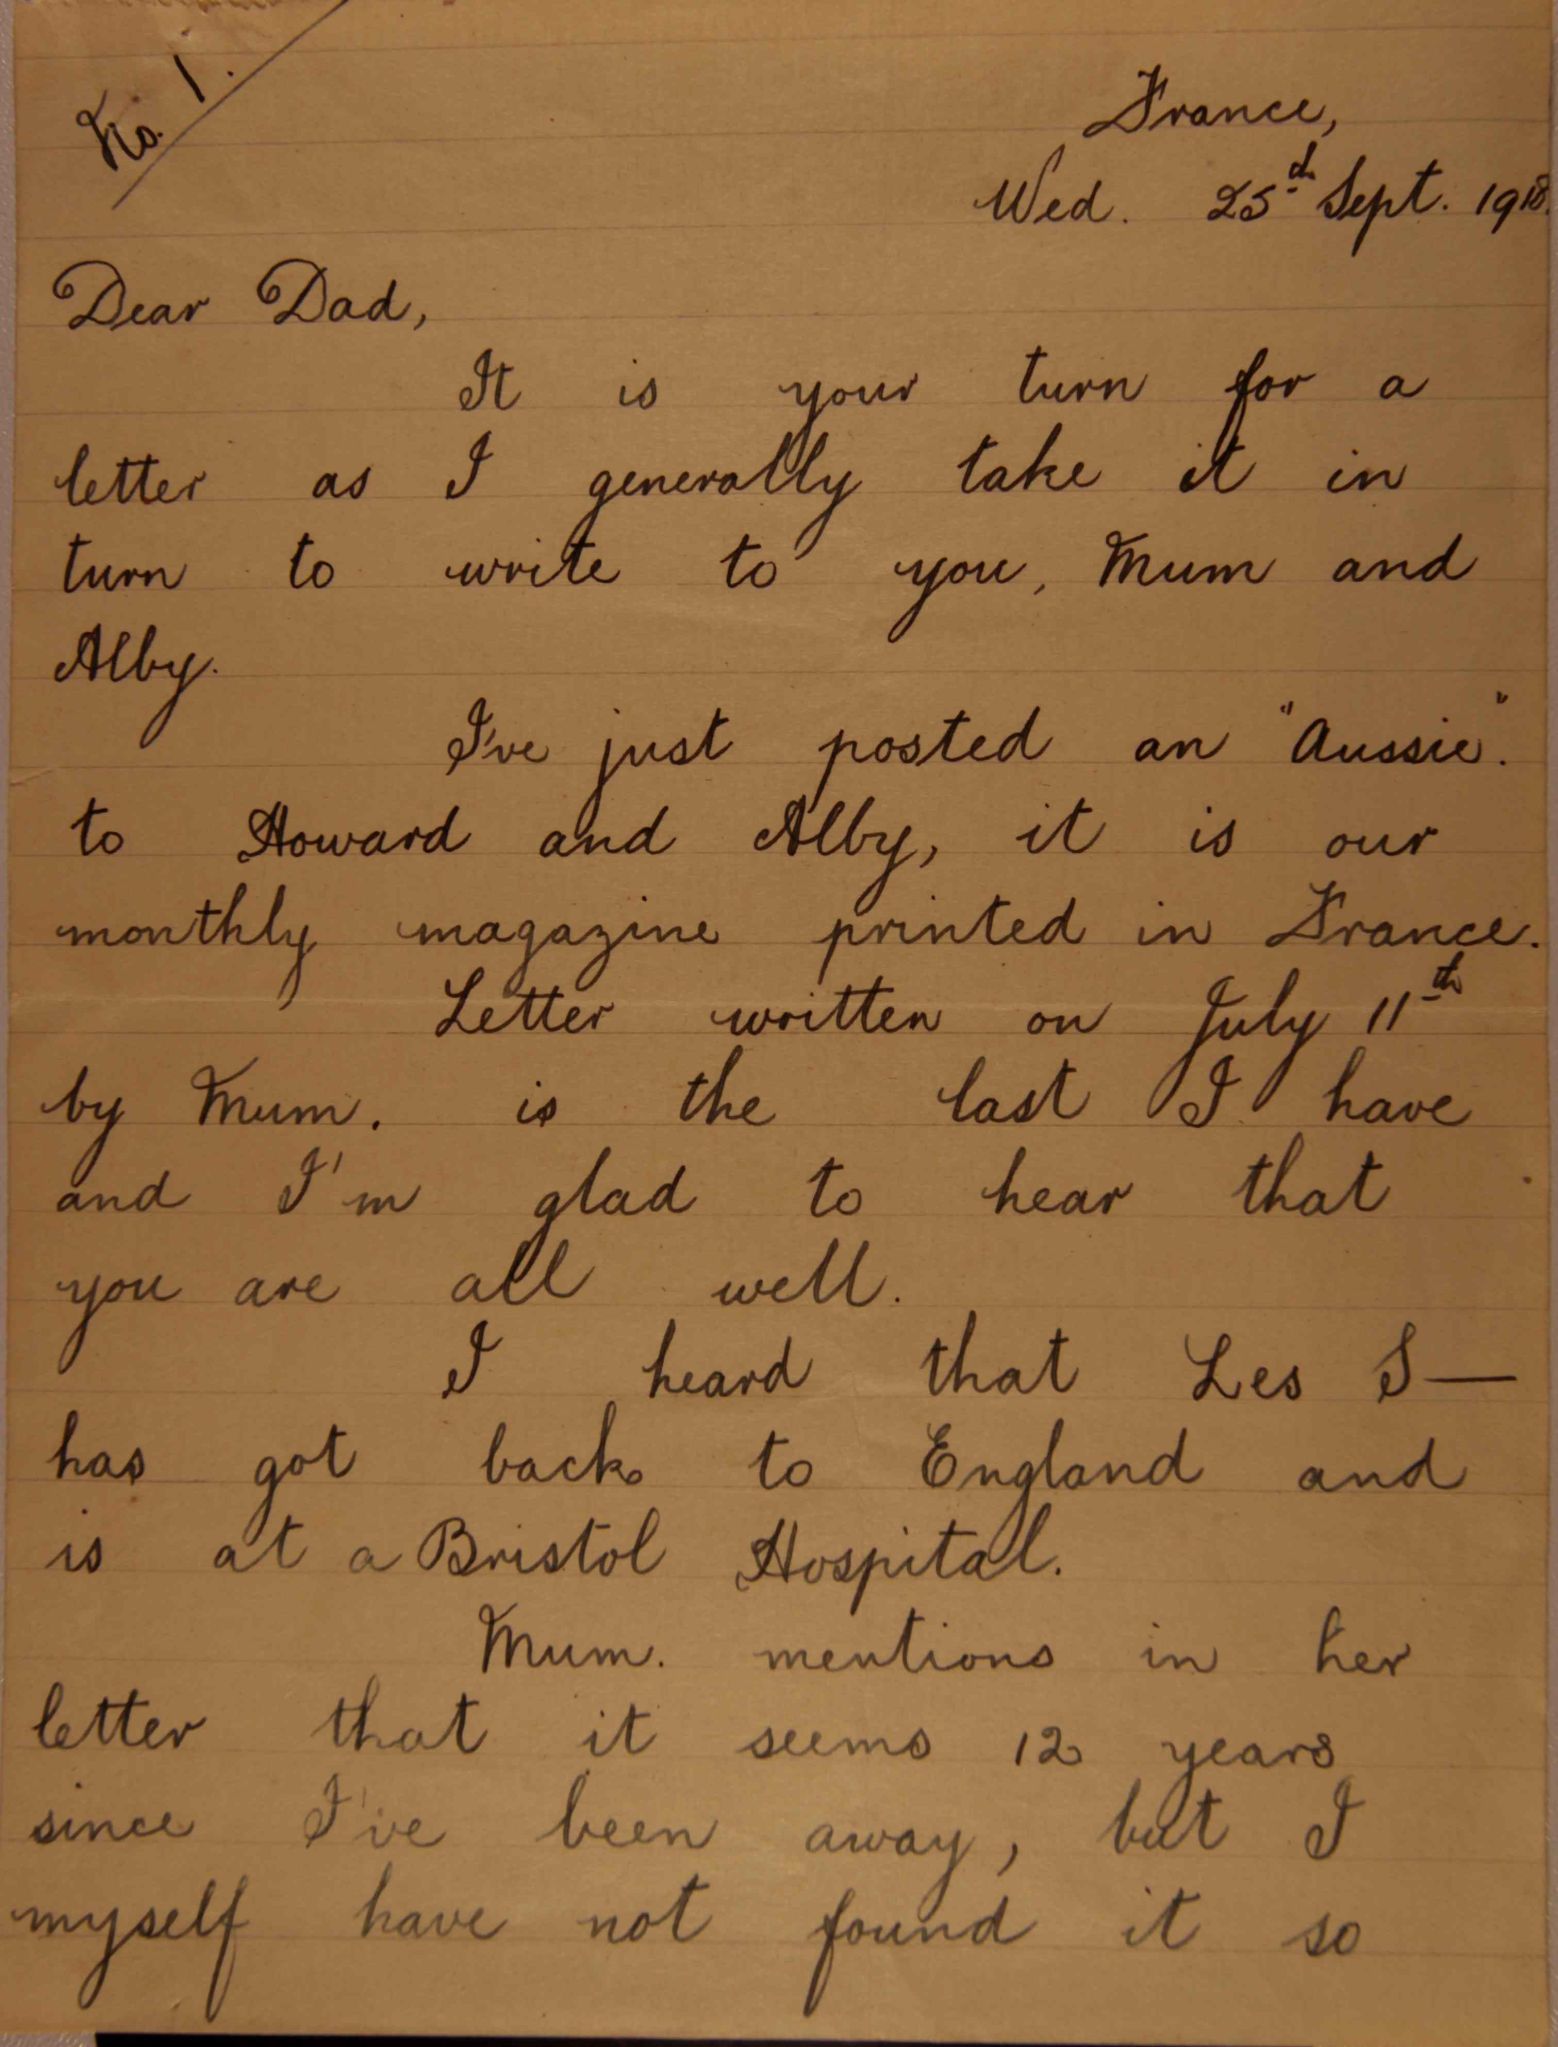 No. 1.
France,
Wed. 25th Sept. 1918.
Dear Dad,
It is your turn for a
letter as I generally take it in
turn to write to you, Mum and
Alby.
I've just posted an "Aussie".
to Howard and Alby, it is our
monthly magazine printed in France.
Letter written on July 11th
by Mum. is the last I have
and I'm glad to hear that
you are all well.
I heard that Les S—
has got back to England and
is at a Bristol Hospital.
Mum. mentions in her
letter that it seems 12 years
since I've been away, but I
myself have not found it so